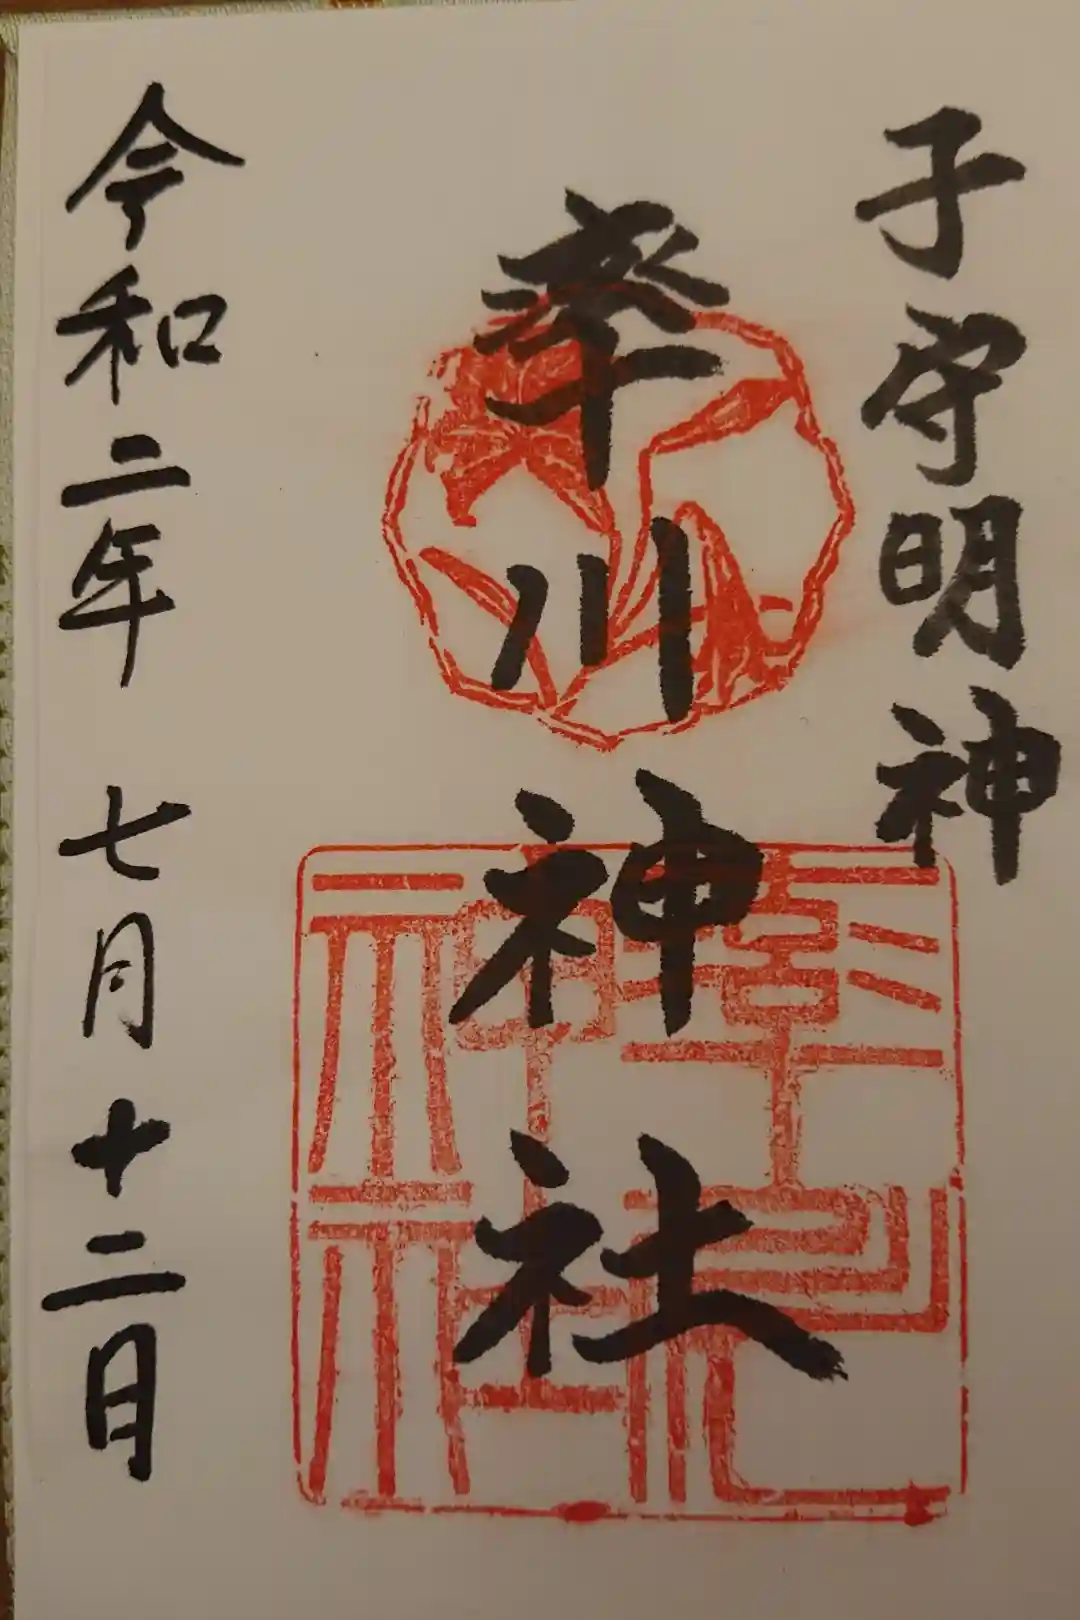 子守明神
率川神社
令和二年 七月十二日